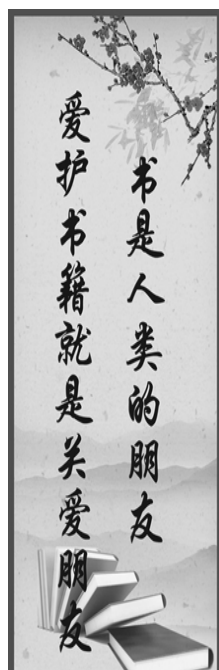 书是人类的朋友
爱护书籍就是关爱朋友